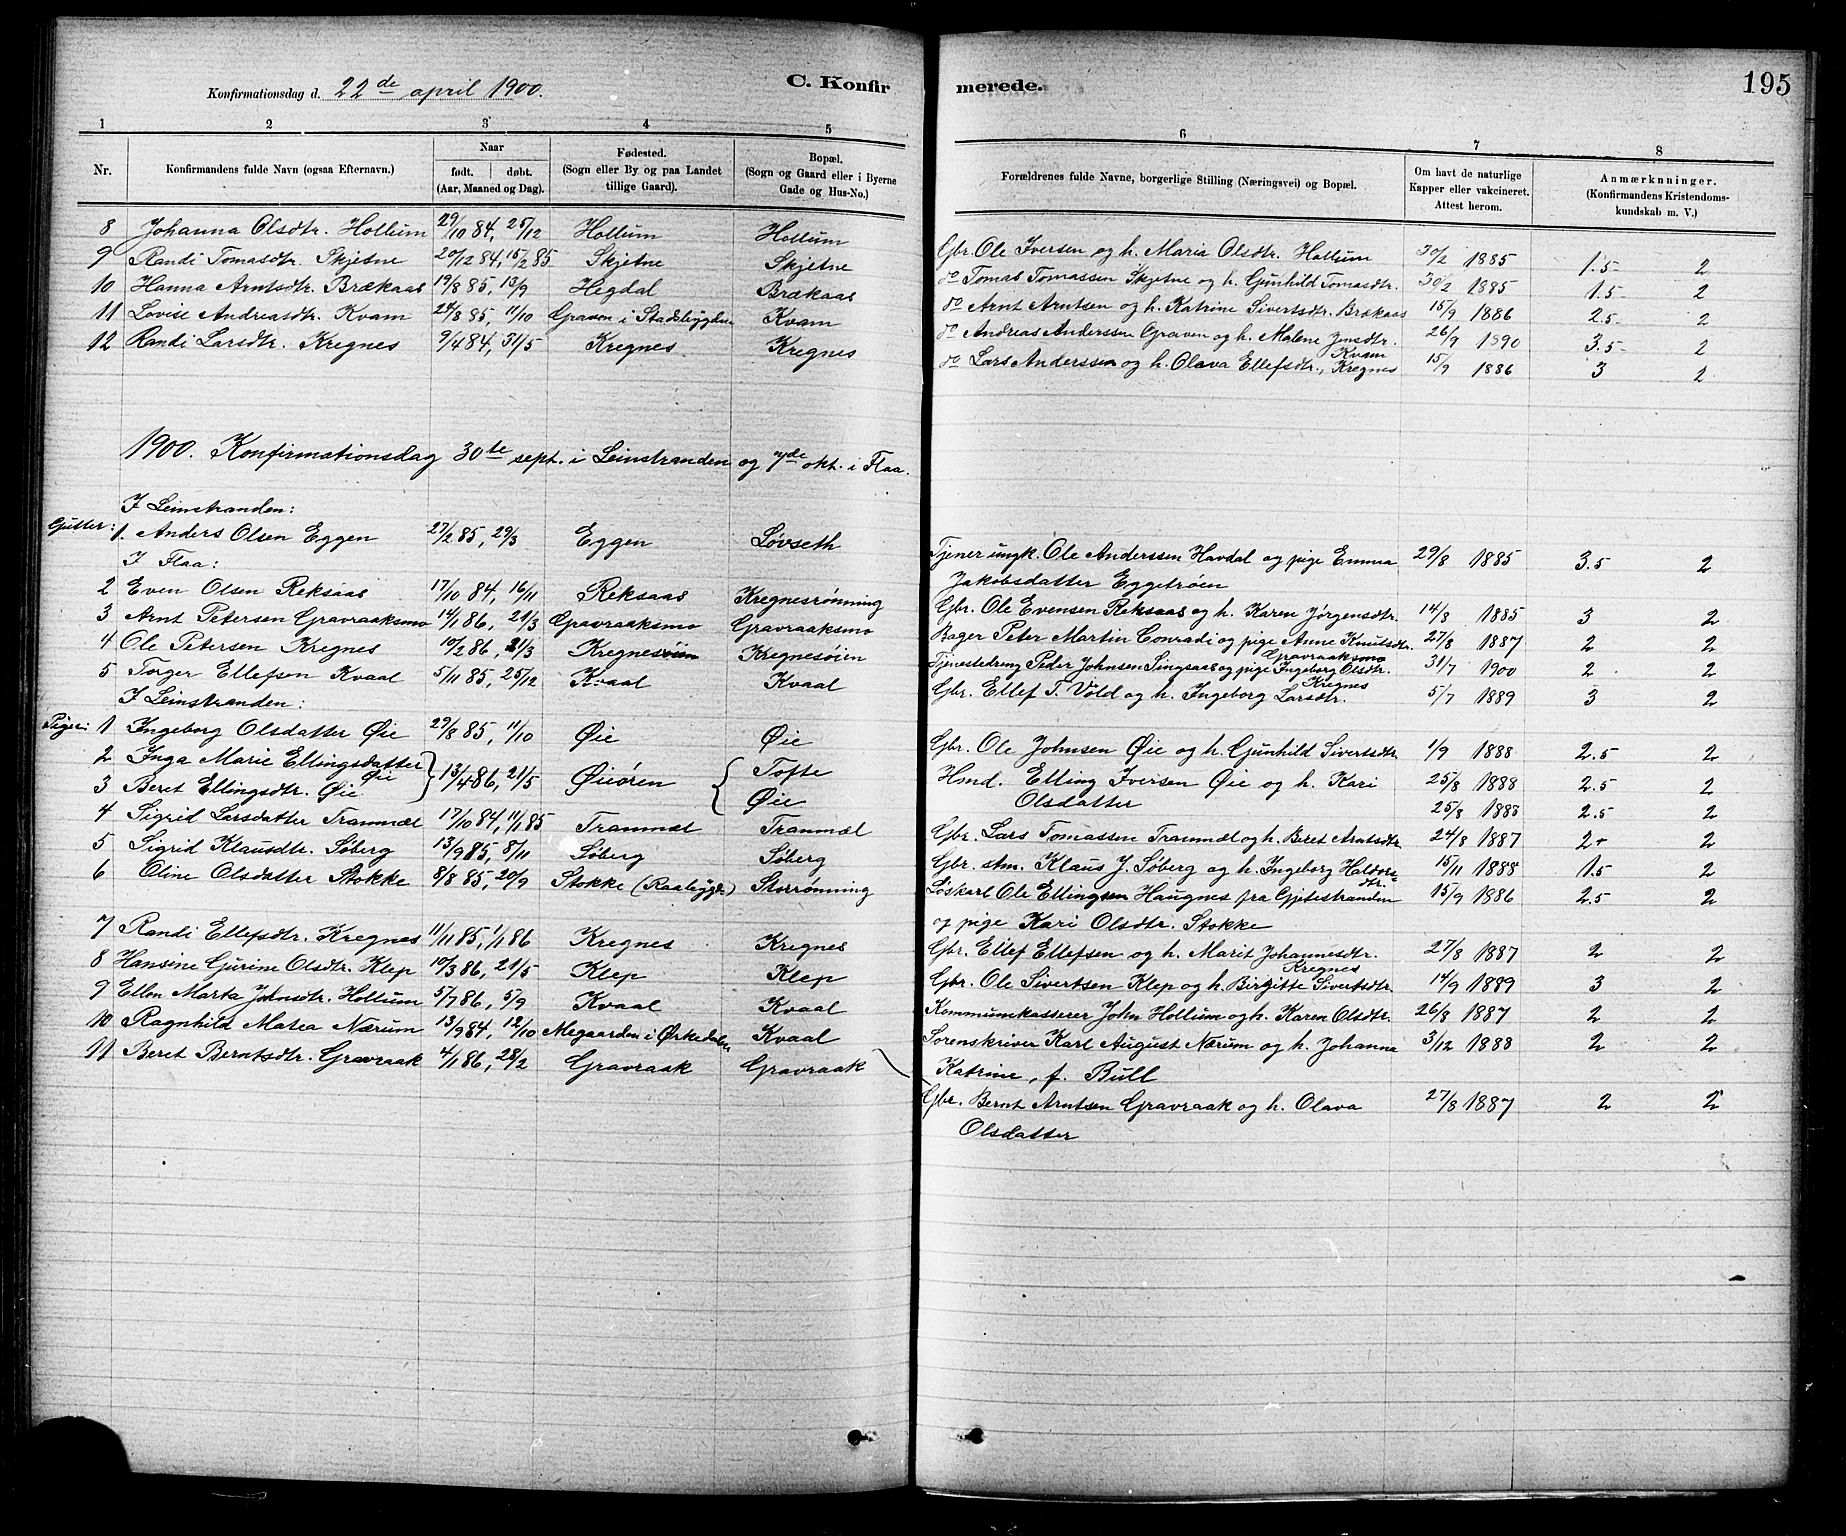 Konfirmationsdag d. 22de april 1900.
C. Konfir
1 2 3 4 5
Nr.
Konfirmandens fulde Navn (ogsaa Efternavn.)
Naar
født. døbt.
(Aar, Maaned og Dag).
Fødested.
(Sogn eller By og paa Landet
tillige Gaard).
Bopæl.
(Sogn og Gaard eller i Byerne
Gade og Hus-No.)
8 Johanna Olsdtr. Hollum 29/10 84, 25/12 Hollum Hollum
9 Randi Tomasdtr. Skjetne 20/12 84, 15/2 85 Skjetne Skjetne
10 Hanna Arntsdtr. Brækaas 19/8 85, 13/9 Hegdal Brækaas
11 Lovise Andreasdtr. Kvam 24/8 85, 11/10 Graven i Stadsbygden Kvam
12 Randi Larsdtr. Kregnes 9/4 84, 31/5 Kregnes Kregnes
1900. Konfirmationsdag 30te sept. i Leinstranden og 7de okt. i Flaa.
I Leinstranden:
Gutter: 1. Anders Olsen Eggen 27/2 85, 29/3 Eggen Løvseth
I Flaa:
2 Even Olsen Reksaas 17/10 84, 16/11 Reksaas Kregnesrønning
3 Arnt Petersen Gravraaksmo 14/1 86, 21/3 Gravraaksmo Gravraaksmo
4 Ole Petersen Kregnes 10/2 86, 21/3 Kregnesøien Kregnesøien
5 Torger Ellefsen Kvaal 5/11 85, 25/12 Kvaal Kvaal
I Leinstranden:
Piger: 1 Ingeborg Olsdatter Øie 29/8 85, 11/10 Øie Øie
2 Inga Marie Ellingsdatter Øie 13/4 86, 21/5 Øieøren Tofte
3 Beret Ellingsdtr. Øie Øie
4 Sigrid Larsdatter Tranmæl 17/10 84, 11/1 85 Tranmæl Tranmæl
5 Sigrid Klausdtr. Søberg 13/9 85, 8/11 Søberg Søberg
6 Oline Olsdatter Stokke 8/8 85, 20/9 Stokke (Raabygd.) Storrønning
7 Randi Ellefsdtr. Kregnes 11/11 85, 1/1 86 Kregnes Kregnes
8 Hansine Gurine Olsdtr. Klep 10/3 86, 21/5 Klep Klep
9 Ellen Marta Johnsdtr. Hollum 5/7 86, 5/9 Kvaal Kvaal
10 Ragnhild Matea Nærum 13/9 84, 12/10 Megaarden i Ørkedalen Kvaal
11 Beret Berntsdtr. Gravraak 4/1 86, 28/2 Gravraak Gravraak
merede. 195
6 7 8
Forældrenes fulde Navne, borgerlige Stilling (Næringsvei) og Bopæl.
Om havt de naturlige
Kapper eller vakcineret.
Attest herom.
Anmærkninger.
(Konfirmandens Kristendoms-
kundskab m. V.)
Gbr. Ole Iversen og h. Maria Olsdtr. Hollum 30/2 1885 1.5 2
do Tomas Tomassen Skjetne og h. Gunhild Tomasdtr. 30/2 1885 1.5 2
do Arnt Arntsen og h. Katrine Sivertsdtr. Brækaas 15/9 1886 2.5 2
do Andreas Anderssen Graven og h. Malene Jensdtr. Kvam 26/9 1890 3.5 2
do Lars Anderssen og h. Olava Ellefsdtr., Kregnes 15/9 1886 3 2
Tjener ungk. Ole Anderssen Havdal og pige Emma 29/8 1885 3.5 2
Jakobsdatter Eggetrøen
Gbr. Ole Evensen Reksaas og h. Karen Jørgensdtr. 14/8 1885 3 2
Bager Peter Martin Conradi og pige Anne Knutsdtr. Gravraaksmo 27/8 1887 2 2
Tjenestedreng Peder Johnsen Singsaas og pige Ingeborg Olsdtr. Kregnes 31/7 1900 2 2
Gbr. Ellef T. Vold og h. Ingeborg Larsdtr. 5/7 1889 3 2
Gbr. Ole Johnsen Øie og h. Gunhild Sivertsdtr. 1/9 1888 2.5 2
Hmd. Elling Iversen Øie og h. Kari 25/8 1888 2.5 2
Olsdatter 25/8 1888 2.5 2
Gbr. Lars Tomassen Tranmæl og h. Beret Arntsdtr. 24/8 1887 2+ 2
Gbr. stm. Klaus J. Søberg og h. Ingeborg Haldorsdtr. 15/11 1888 1.5 2
Løskarl Ole Ellingsen Haugnes fra Gjetestranden 15/9 1886 2.5 2
og pige Kari Olsdtr. Stokke
Gbr. Ellef Ellefsen og h. Marit Johannesdtr. Kregnes 27/8 1887 2 2
Gbr. Ole Sivertsen Klep og h. Birgitte Sivertsdtr. 14/9 1889 3 2
Kommunekasserer John Hollum og h. Karen Olsdtr. 26/8 1887 2 2
Sorenskriver Karl August Nærum og h. Johanna 3/12 1888 2 2
Katrine, f. Bull
Gbr. Bernt Arntsen Gravraak og h. Olava 27/8 1887 2 2
Olsdatter